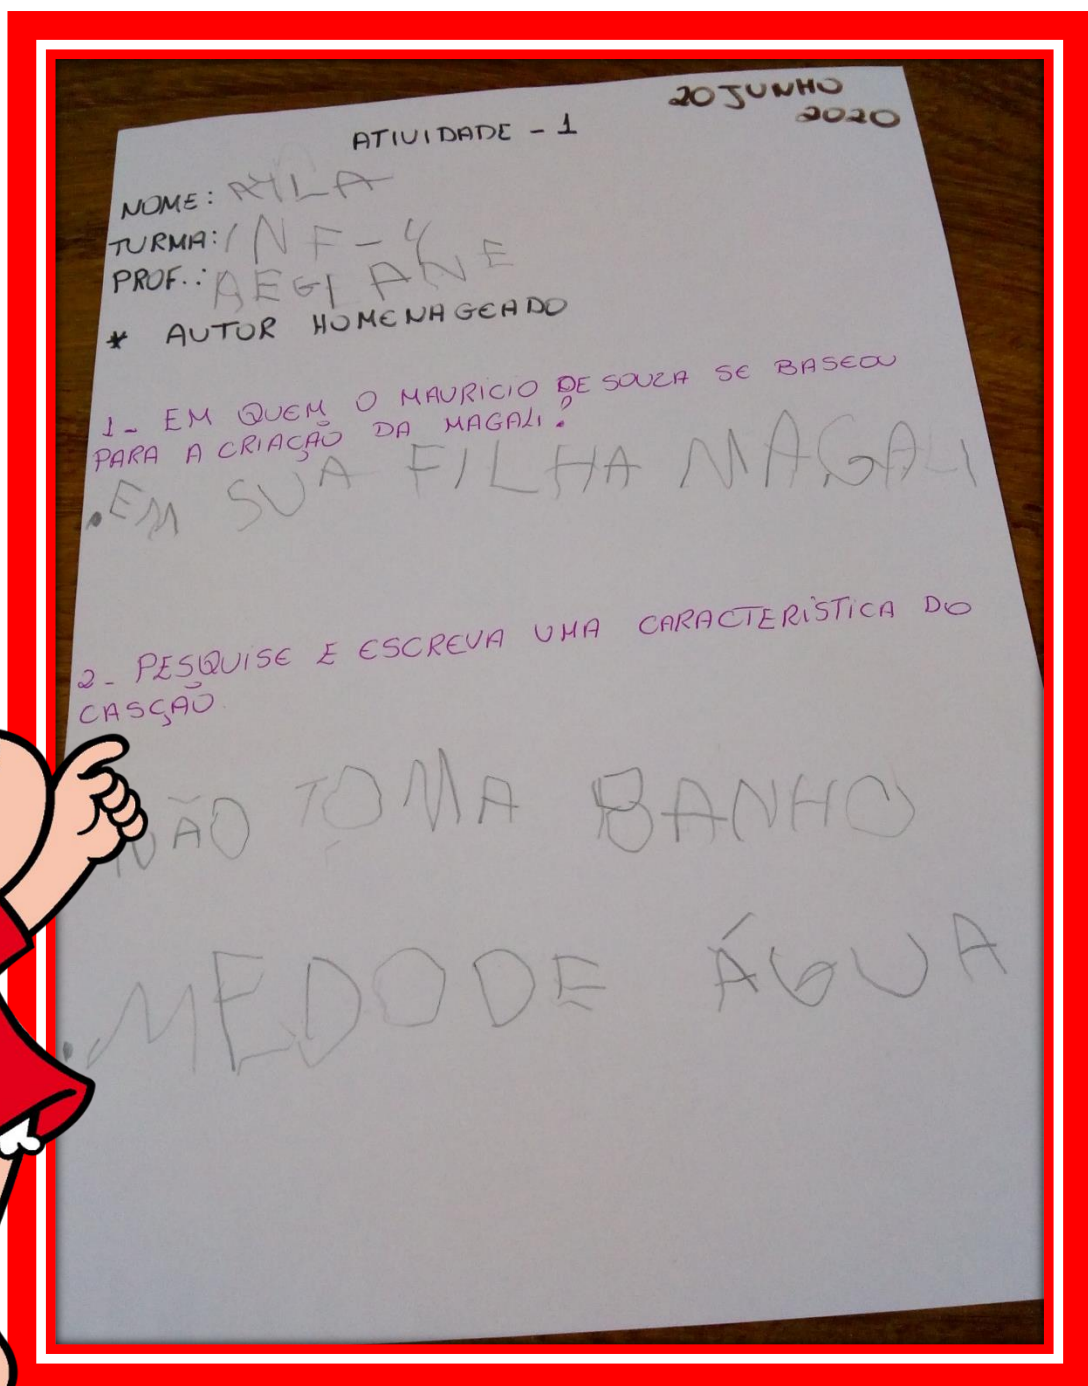 20 JUNHO
2020
ATIVIDADE - 1
NOME: AYLA
TURMA: INF-4
PROF.: REGIANE
* AUTOR HOMENAGEADO
1- EM QUEM O MAURICIO DE SOUZA SE BASEOU
PARA A CRIAÇÃO DA MAGALI?
.EM SUA FILHA MAGALI
2- PESQUISE E ESCREVA UMA CARACTERÍSTICA DO
CASÇÃO.
NÃO TOMA BANHO
.MEDO DE ÁGUA